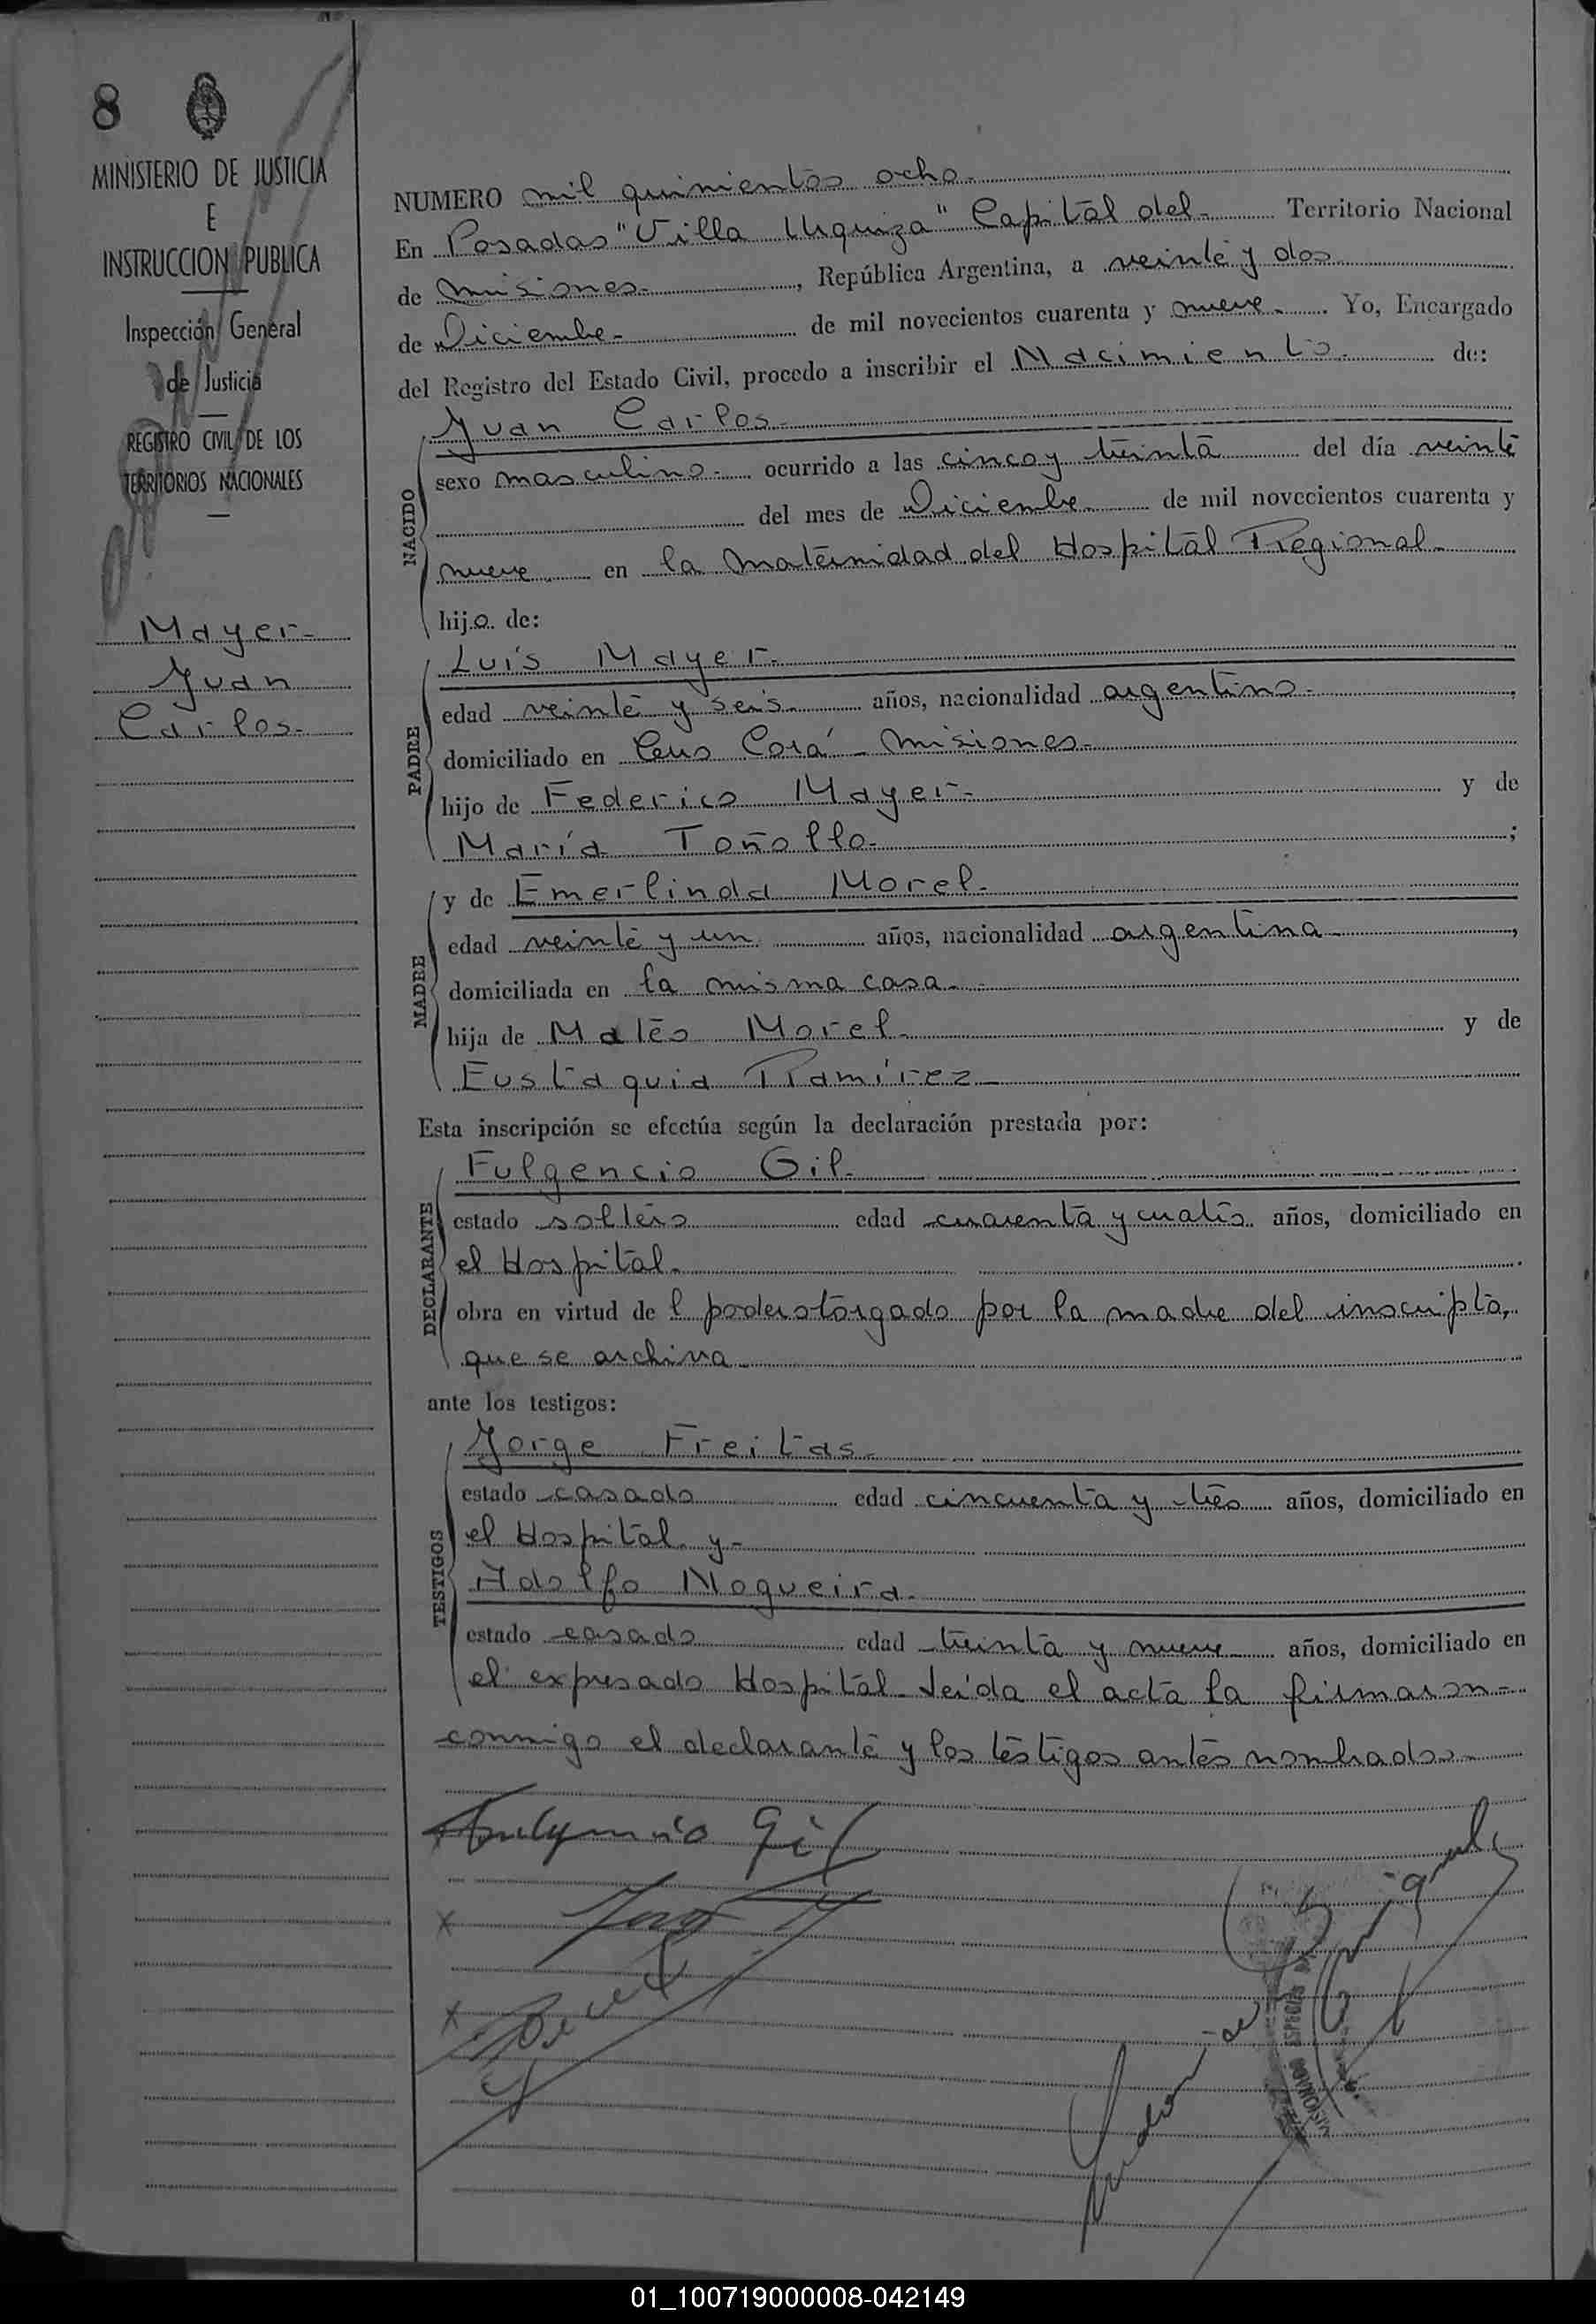 8
MINISTERIO DE JUSTICIA
E
INSTRUCCION PUBLICA
Inspección General
de Justicia
REGISTRO CIVIL DE LOS
TERRITORIOS NACIONALES
Mayer-
Juan
Carlos-
NUMERO mil quinientos ocho-
En Posadas "Villa Urquiza" Capital del- Territorio Nacional
de Misiones-, República Argentina, a veinte y dos
de Diciembre- de mil novecientos cuarenta y nueve-. Yo, Encargado
del Registro del Estado Civil, procedo a inscribir el Nacimiento- de:
NACIDO
Juan Carlos-
sexo masculino- ocurrido a las cinco y treinta del día veinte
del mes de Diciembre- de mil novecientos cuarenta y
nueve en la Maternidad del Hospital Regional-
hijo de:
PADRE
Luis Mayer-
edad veinte y seis- años, nacionalidad argentino-,
domiciliado en Cerro Corá - Misiones-
hijo de Federico Mayer- y de
María Toñollo-;
MADRE
y de Emerlinda Morel-
edad veinte y un años, nacionalidad argentina-,
domiciliada en la misma casa-
hija de Mateo Morel- y de
Eustaquia Ramírez-
Esta inscripción se efectúa según la declaración prestada por:
DECLARANTE
Fulgencio Gil-
estado soltero edad cuarenta y cuatro años, domiciliado en
el Hospital-.
obra en virtud de l poder otorgado por la madre del inscripto,
que se archiva-
ante los testigos:
TESTIGOS
Jorge Freitas-
estado casado edad cincuenta y tres años, domiciliado en
el Hospital y-
Adolfo Nogueira-
estado casado edad treinta y nueve años, domiciliado en
el expresado Hospital- Leída el acta la firmaron-
conmigo el declarante y los testigos antes nombrados-
Fulgencio Gil
01_100719000008-042149